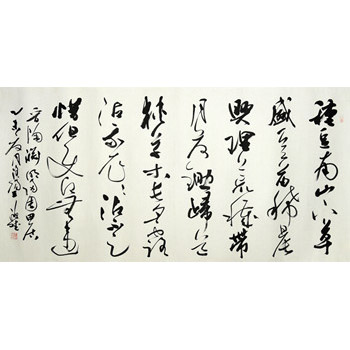 種豆南山下草
盛豆苗稀晨
興理荒穢帶
月荷鋤歸道
狹草木長夕露
沾我衣衣沾不足
惜但使願無違
晋陶渊明归园田居